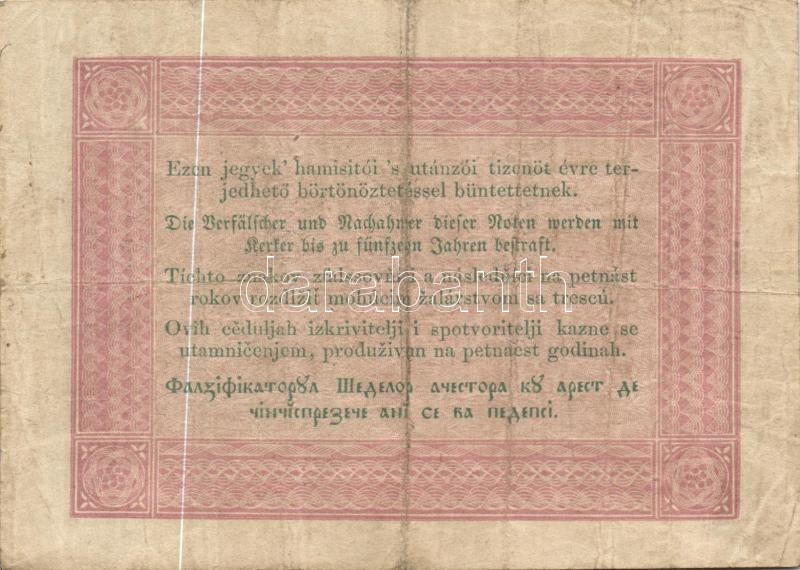 Ezen jegyek' hamisitói 's utánzói tizenöt évre ter-
jedhető börtönöztetéssel büntettetnek.
Die Verfälscher und Nachahmer dieser Noten werden mit
Kerker bis zu fünfzehn Jahren bestraft.
Tíchto a následofci na petnást
rokov rozdlžiť mohúcím žalárstvom sa trescú.
darabanth
Ovih cĕduljah izkrivitelji i spotvoritelji kazne se
utamničenjem, produživan na petnaest godinah.
Фалꙁіфікаторꙋл Шеделор ачестора кꙋ арест де
чінчіспреꙁече ані се ва педепсі.